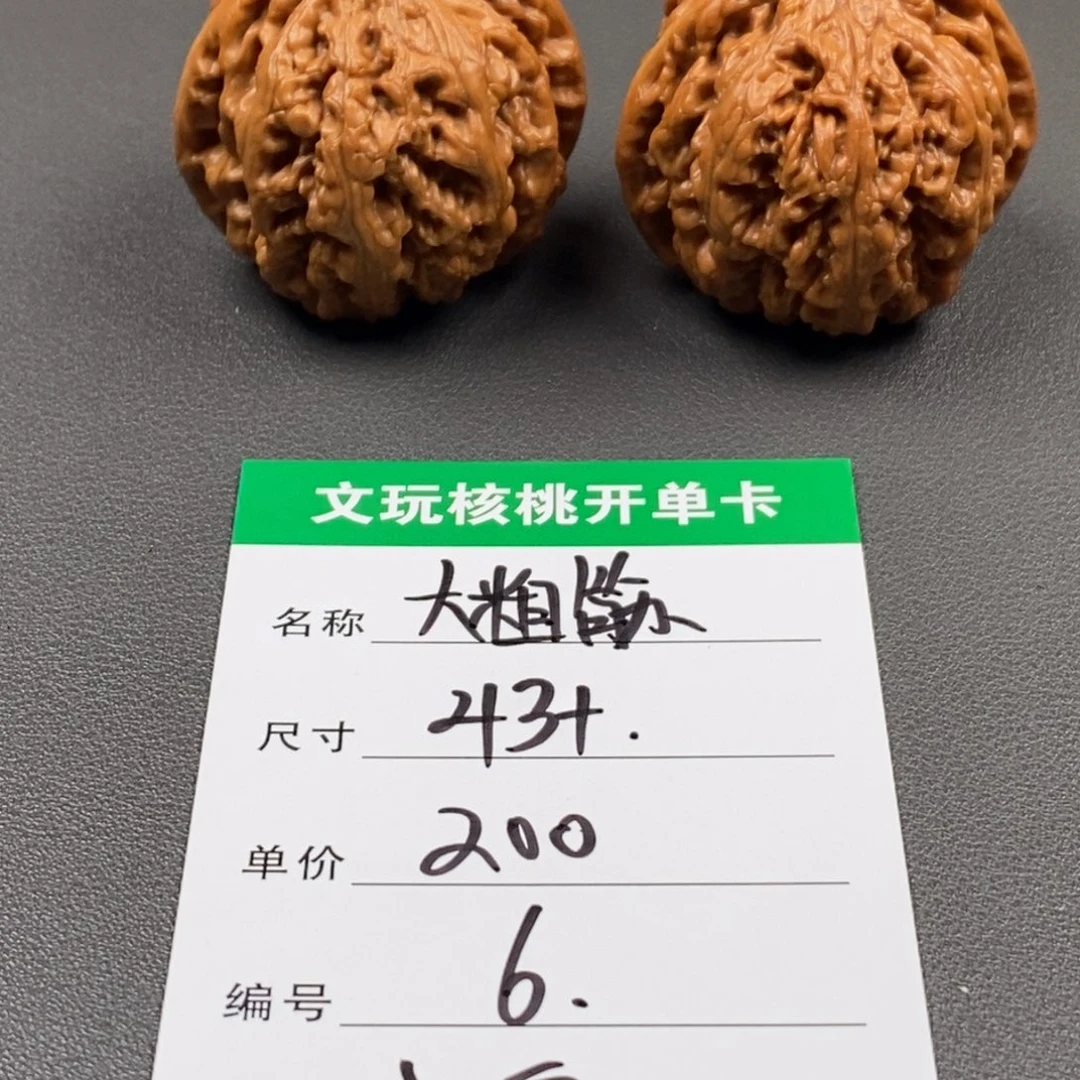 文玩核桃开单卡
名称 大粗筋
尺寸 43+.
单价 200
编号 6.